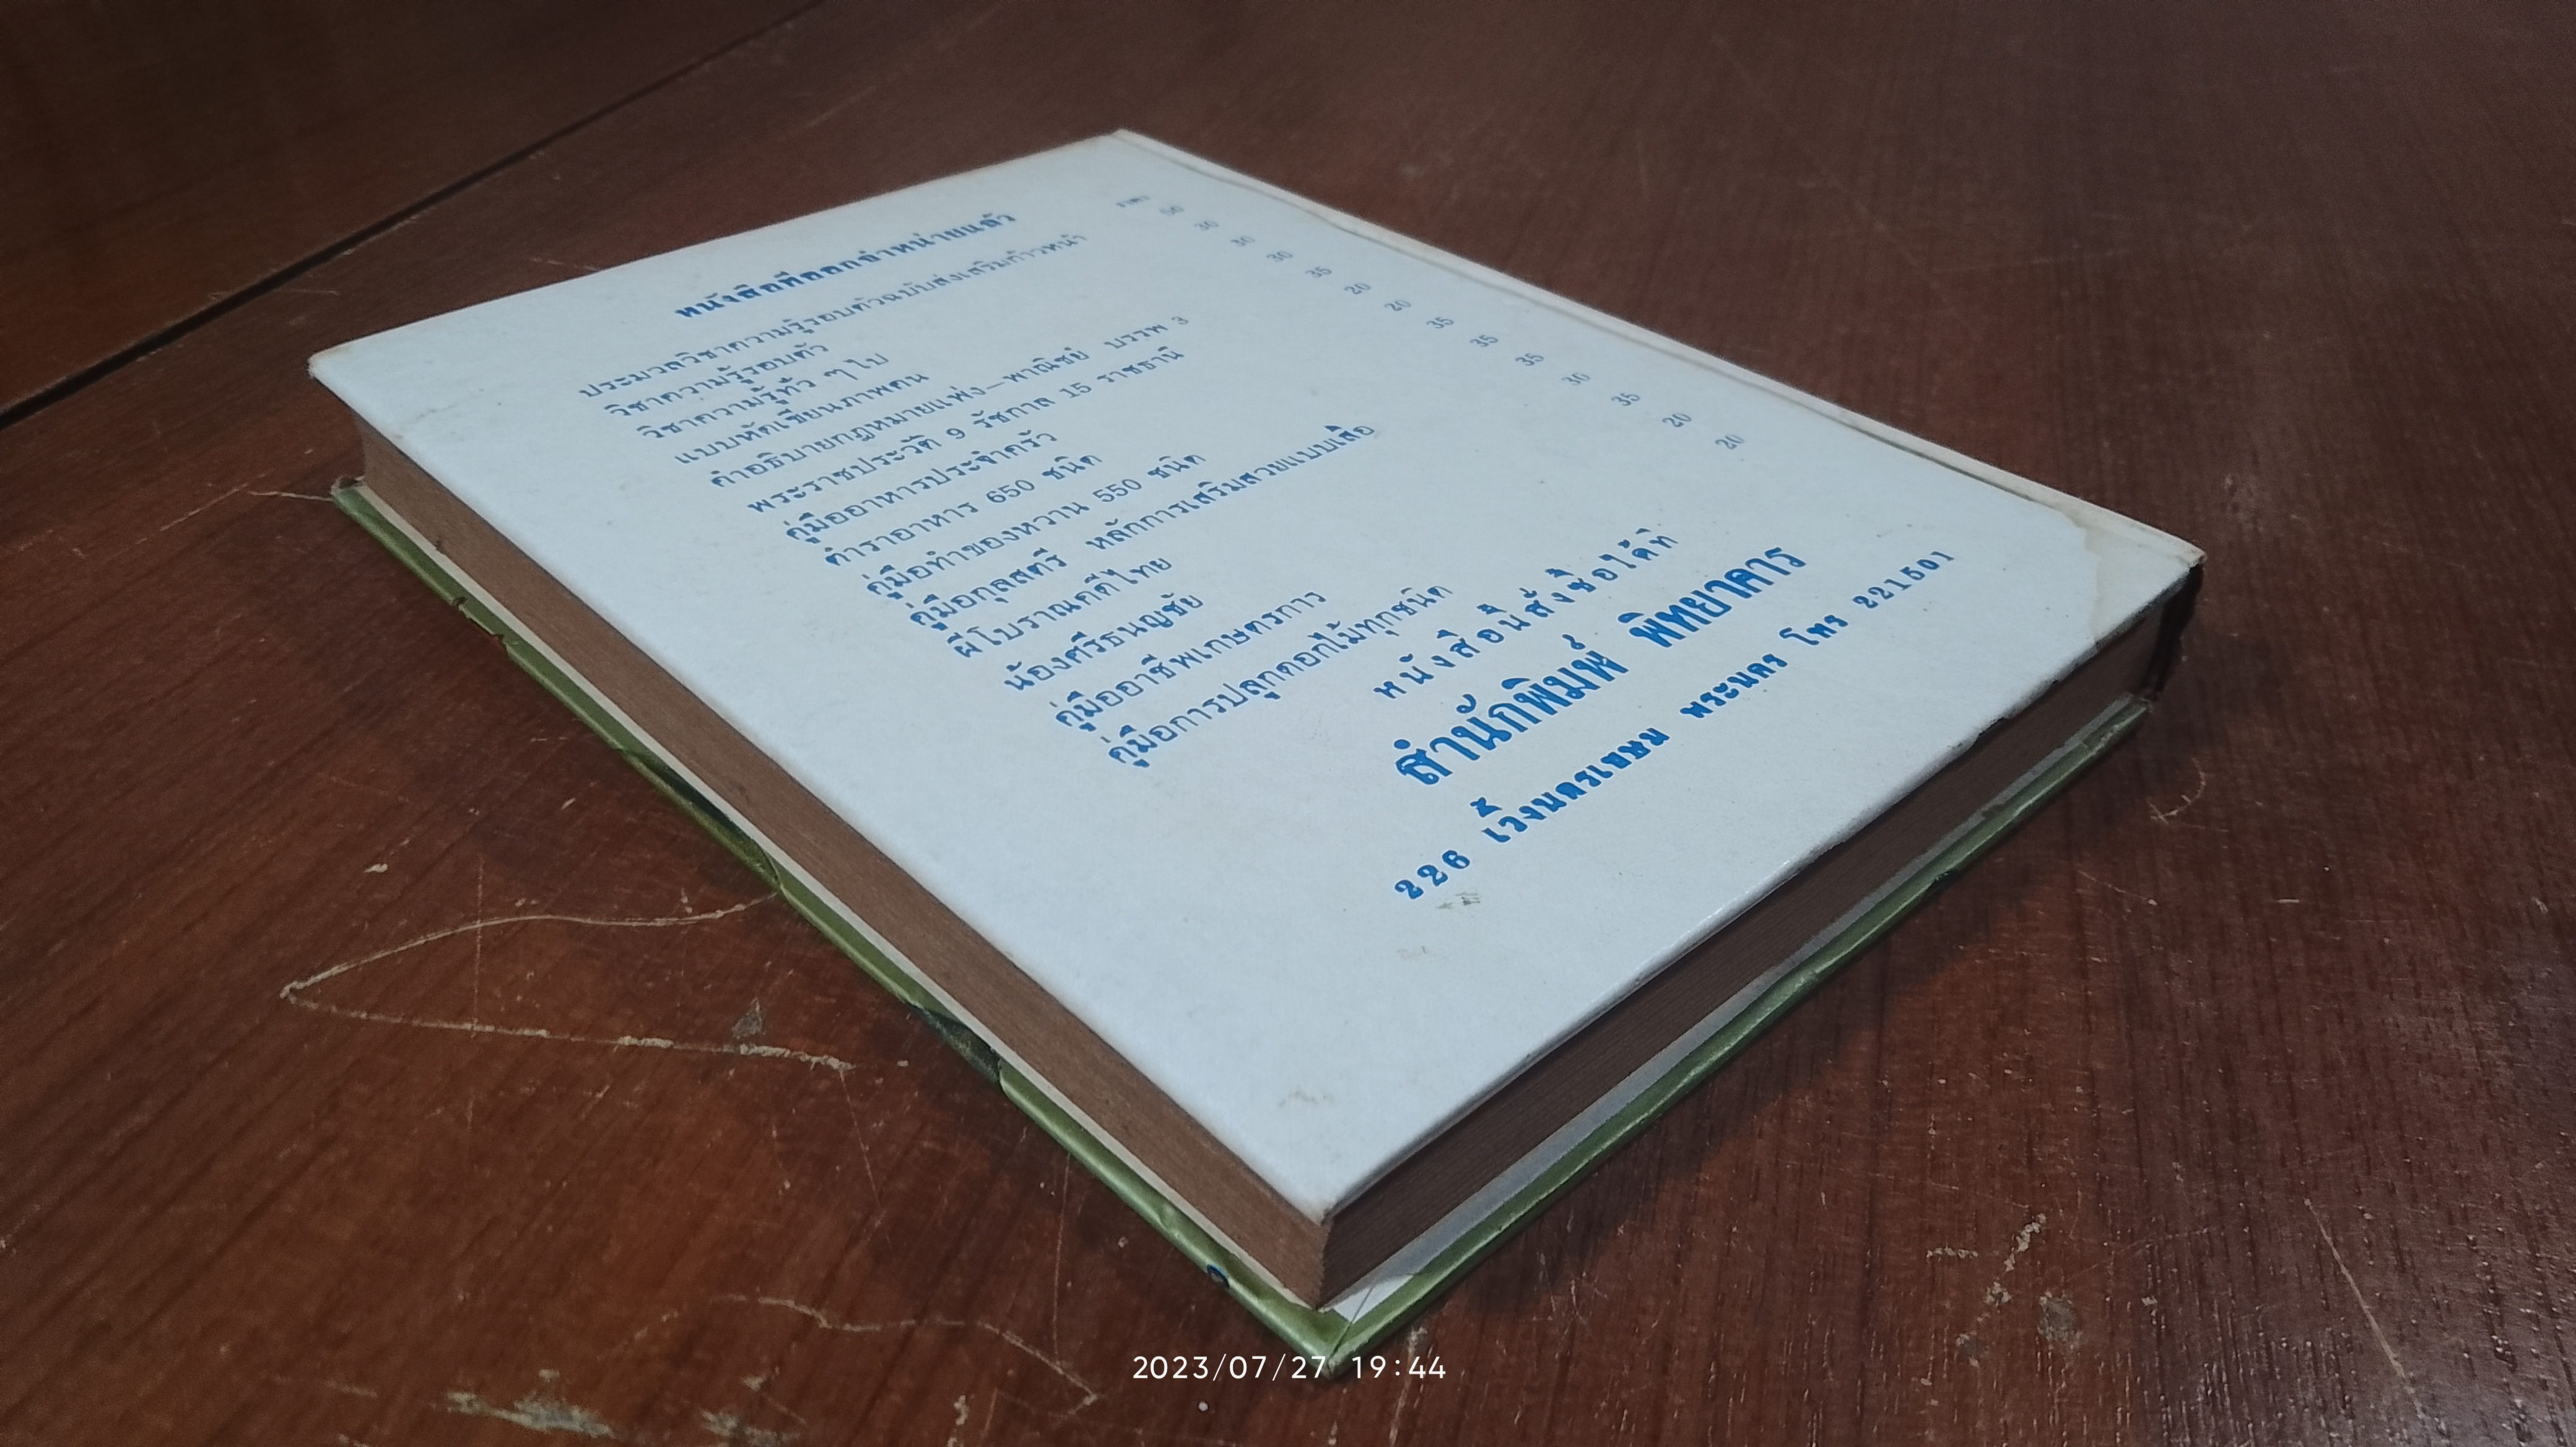 หนังสือที่ออกจำหน่ายแล้ว
ราคา
ประมวลวิชาความรู้รอบตัวฉบับส่งเสริมก้าวหน้า 50
วิชาความรู้รอบตัว 30
วิชาความรู้ทั่ว ๆ ไป 30
แบบหัดเขียนภาพคน 30
คำอธิบายกฎหมายแพ่ง–พาณิชย์ บรรพ 3 35
พระราชประวัติ 9 รัชกาล 15 ราชธานี 20
คู่มืออาหารประจำครัว 20
ตำราอาหาร 650 ชนิด 35
คู่มือทำของหวาน 550 ชนิด 35
คู่มือกุลสตรี หลักการเสริมสวยแบบเสื้อ 35
ผีโบราณคดีไทย 30
น้องศรีธนญชัย 35
คู่มืออาชีพเกษตรการ 20
คู่มือการปลูกดอกไม้ทุกชนิด 20
หนังสือนี้สั่งซื้อได้ที่
สำนักพิมพ์ พิทยาคาร
226 เวิ้งนครเขษม พระนคร โทร 221501
2023/07/27 19:44